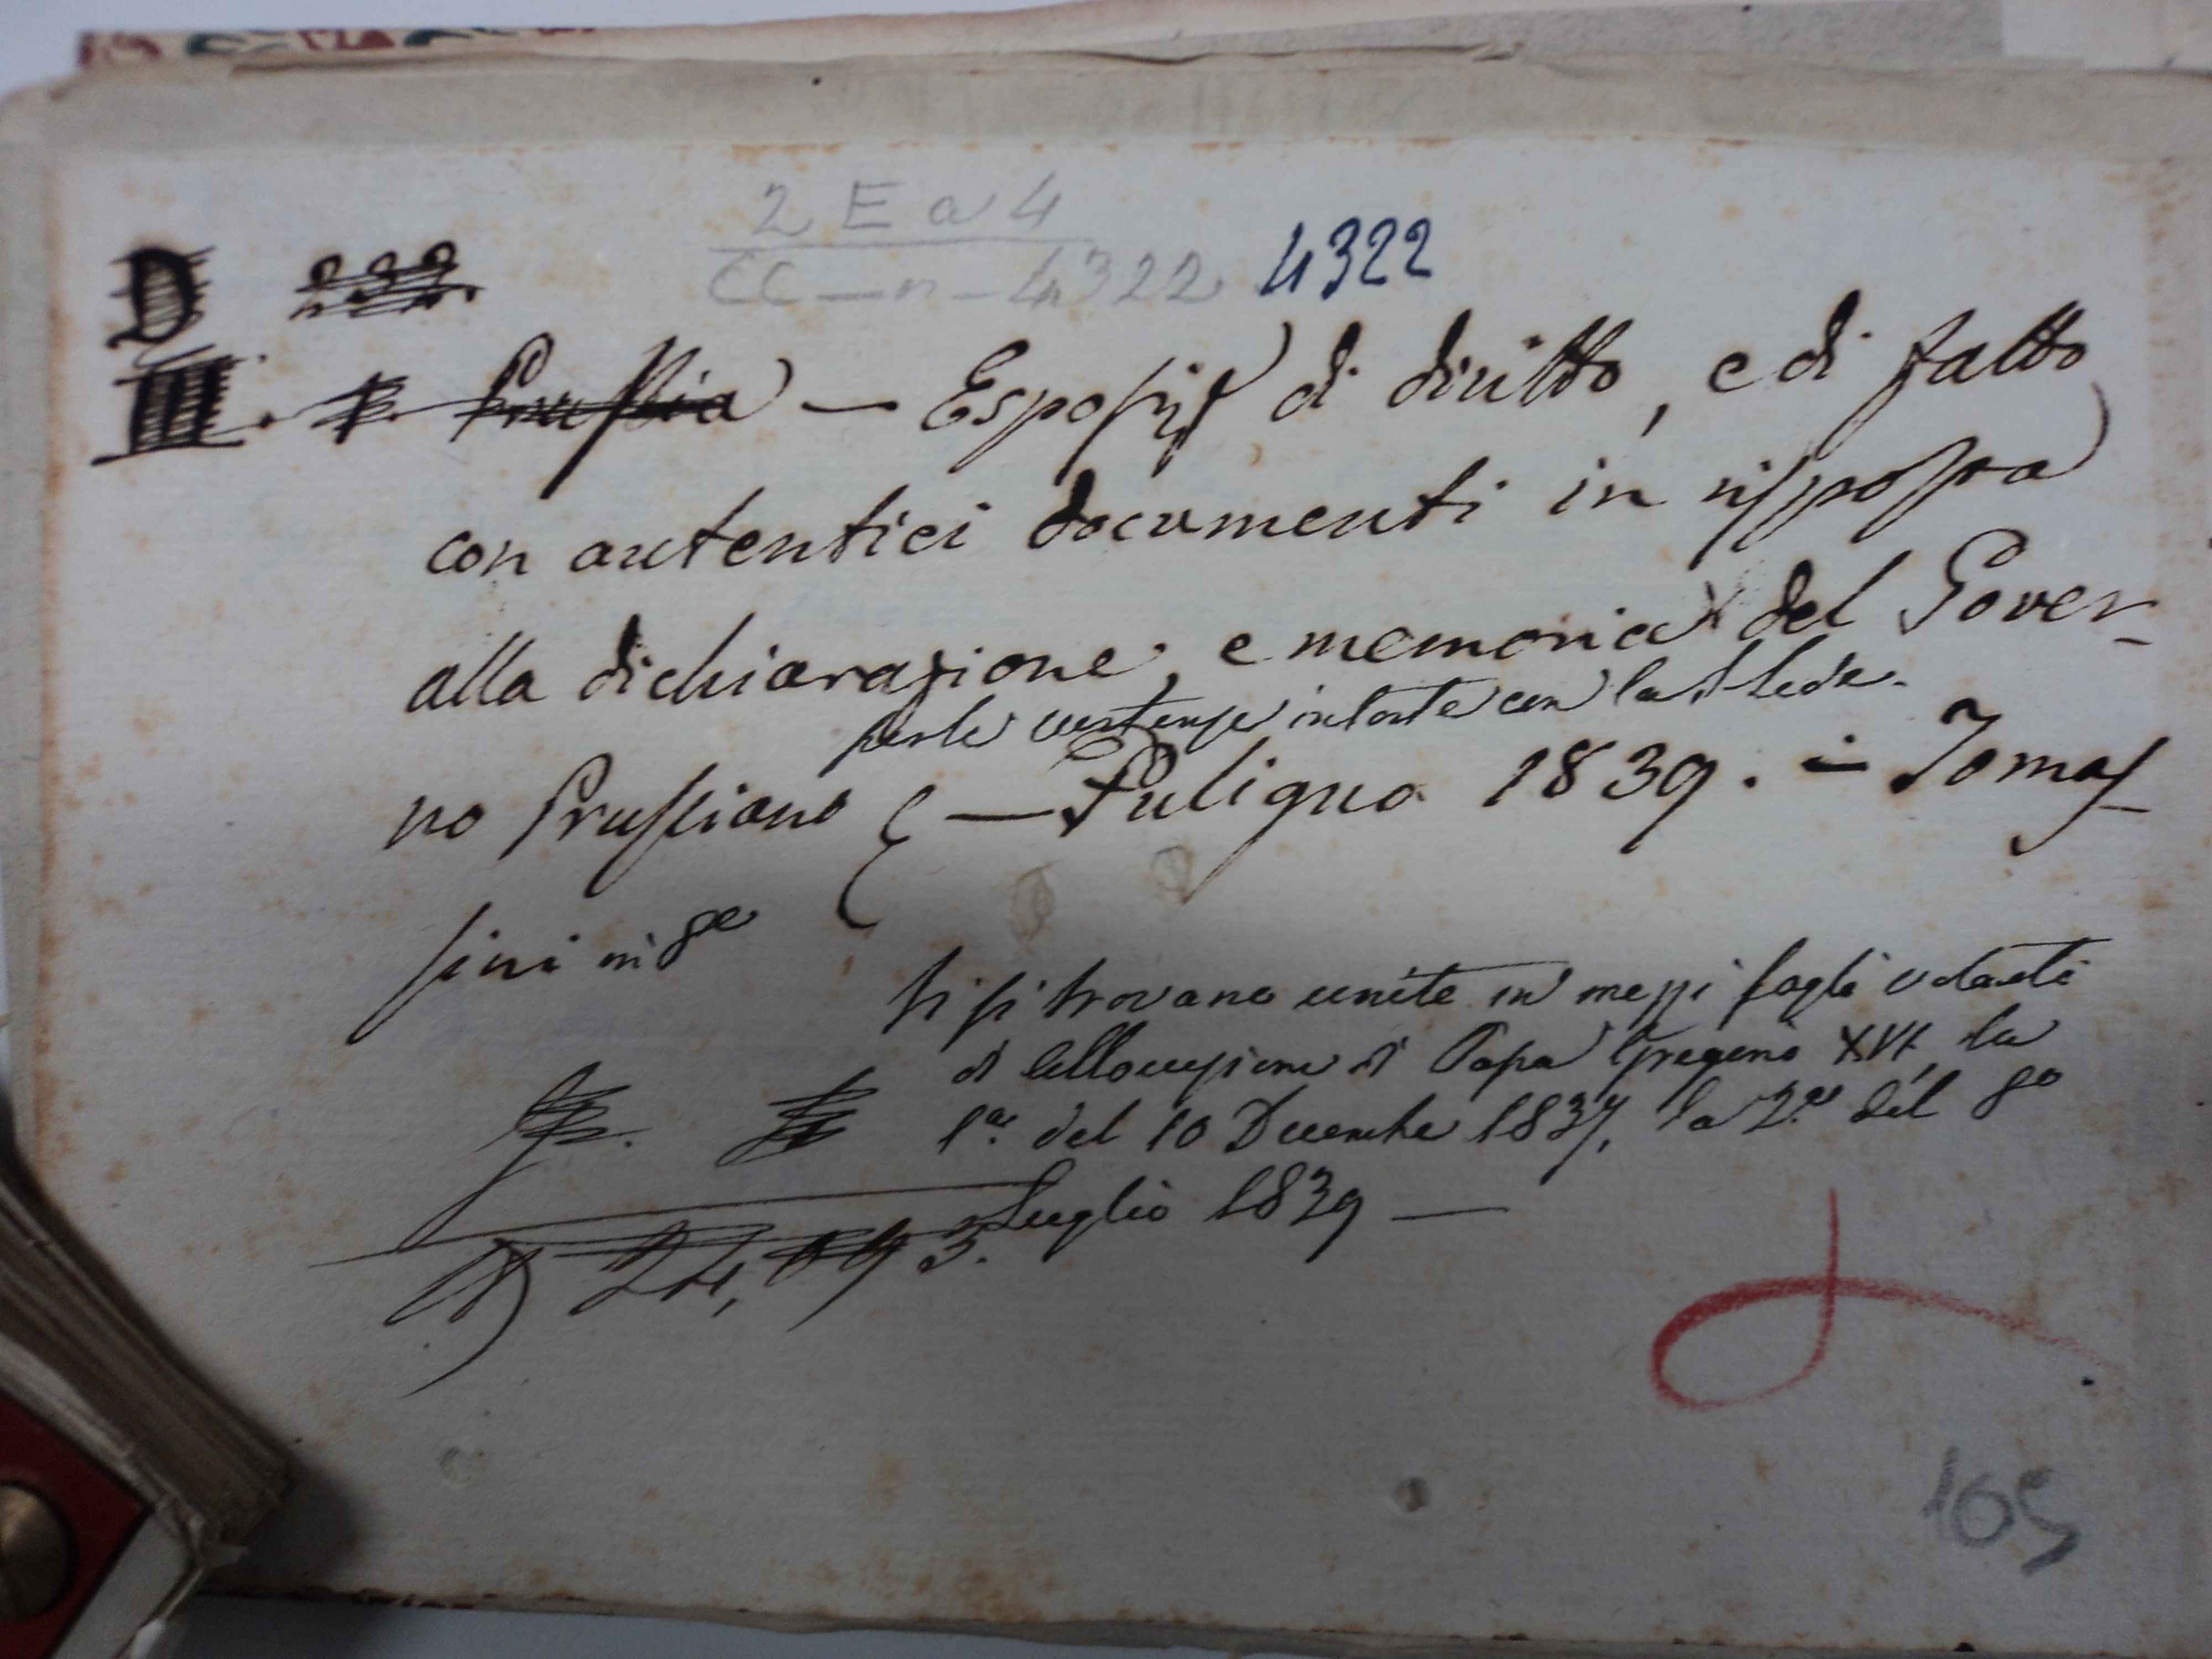 2 E a 4
CC - n - 4322 4322
D
III. Prussia - Esposiz.e di diritto, e di fatto
con autentici documenti in risposta
alla dichiarazione, e memoria del Gover-
per le vertenze insorte con la S. Sede.
no Prussiano - Fuligno 1839. - Tomas-
sini in 8º
Vi si trovano unite in mezzi fogli volanti
Allocuzioni di Papa Gregorio XVI, la
1a. del 10 Decembre 1837, la 2.a del go
Luglio 1839 -
24, 3.
165